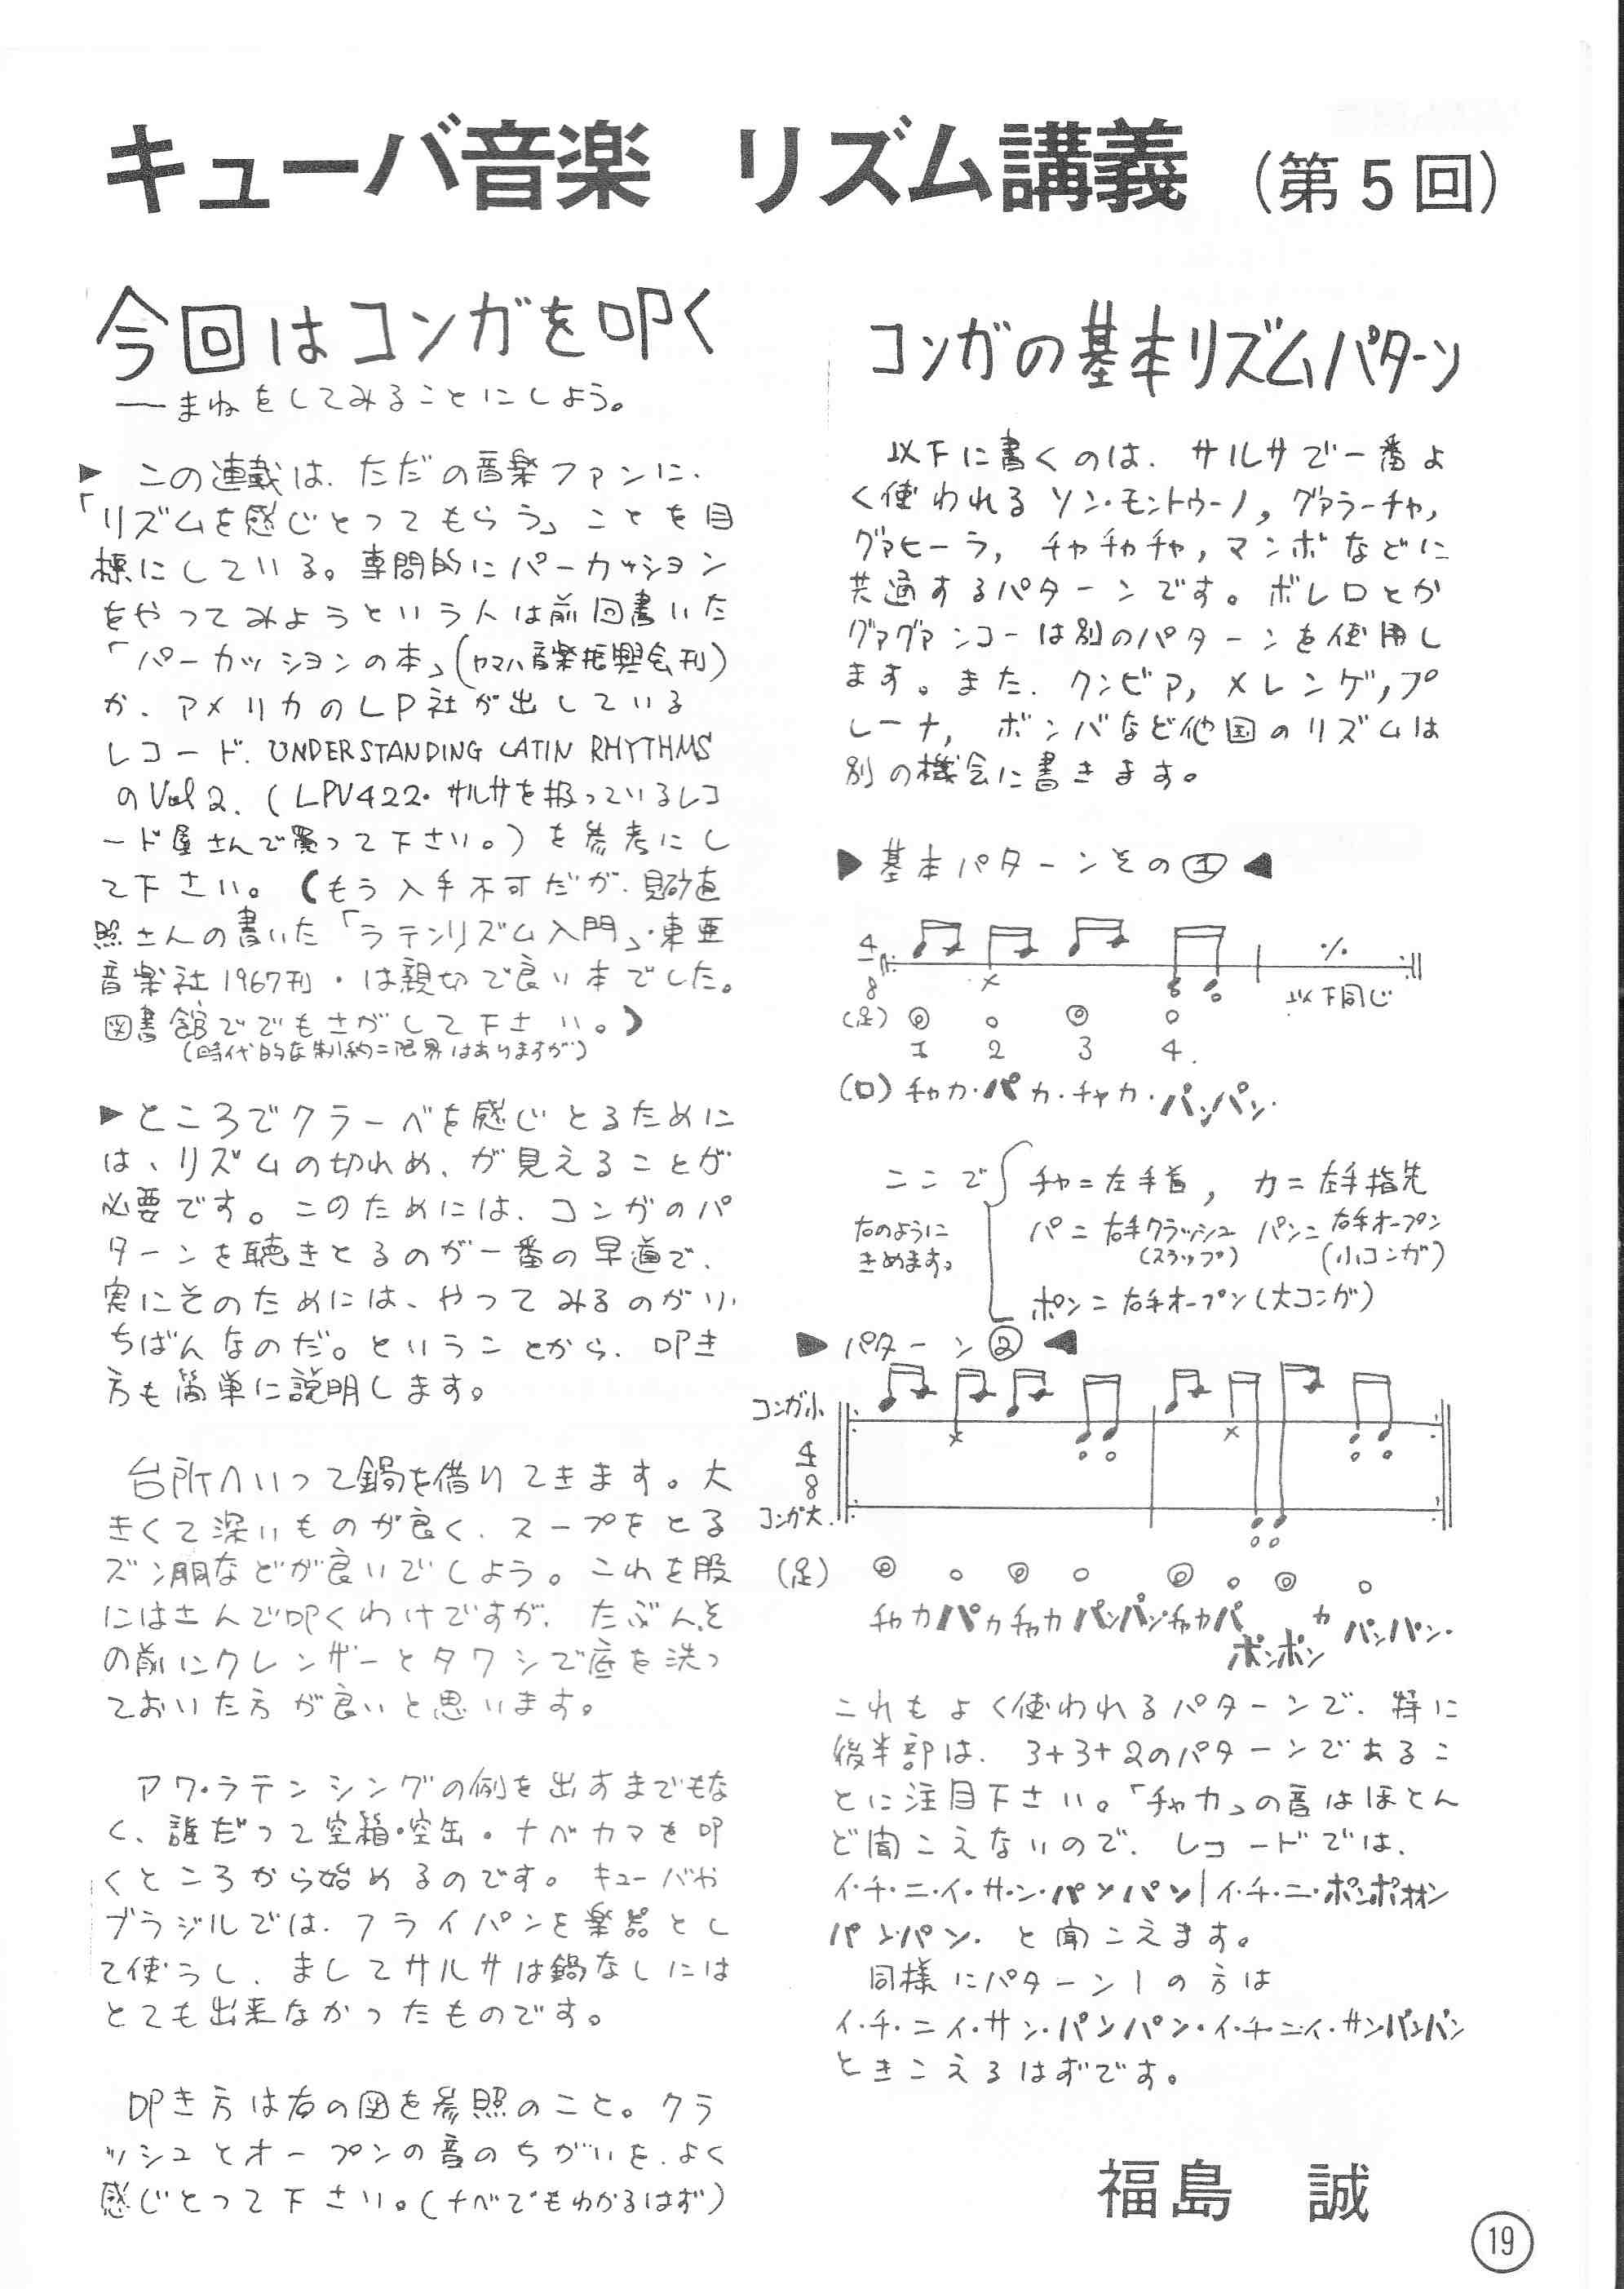 キューバ音楽 リズム講義 (第5回)
今回はコンガを叩く
―まねをしてみることにしよう。
▶ この連載は、ただの音楽ファンに、
「リズムを感じとってもらう」ことを目
標にしている。専門的にパーカッション
をやってみようという人は前回書いた
「パーカッションの本」(ヤマハ音楽振興会刊)
か、アメリカのLP社が出している
レコード、UNDERSTANDING LATIN RHYTHMS
のVol 2.(LPV422・サルサを扱っているレコ
ード屋さんで買って下さい。)を参考にし
て下さい。(もう入手不可だが、見砂直
照さんの書いた「ラテンリズム入門」・東亜
音楽社1967刊・は親切で良い本でした。
図書館ででもさがして下さい。)
(時代的な制約=限界はありますが)
▶ところでクラーベを感じとるために
は、リズムの切れめ、が見えることが
必要です。このためには、コンガのパ
ターンを聴きとるのが一番の早道で、
実にそのためには、やってみるのがい
ちばんなのだ。ということから、叩き
方も簡単に説明します。
台所へいって鍋を借りてきます。大
きくて深いものが良く、スープをとる
ズン胴などが良いでしょう。これを股
にはさんで叩くわけですが、たぶんそ
の前にクレンザーとタワシで底を洗っ
ておいた方が良いと思います。
アワ・ラテンシングの例を出すまでもな
く、誰だって空箱・空缶・ナベカマを叩
くところから始めるのです。キューバや
ブラジルでは、フライパンを楽器とし
て使うし、ましてサルサは鍋なしには
とても出来なかったものです。
叩き方は右の図を参照のこと。クラ
ッシュとオープンの音のちがいを、よく
感じとって下さい。(ナベでもわかるはず)
コンガの基本リズムパターン
以下に書くのは、サルサで一番よ
く使われるソン・モントゥーノ,グァラーチャ,
グァヒーラ,チャチャチャ,マンボなどに
共通するパターンです。ボレロとか
グァグァンコーは別のパターンを使用し
ます。また、クンビア,メレンゲ,プ
レーナ,ボンバなど他国のリズムは
別の機会に書きます。
▶基本パターンその①◀
4
8
x
以下同じ
(足) ◎ ○ ◎ ○
1 2 3 4.
(口) チャカ・パカ・チャカ・パンパン・
ここで チャ=左手首, カ=左手指先
右のように
きめます。
パ=右手クラッシュ パン=右手オープン
(スラップ) (小コンガ)
ポン=右手オープン(大コンガ)
▶パターン②◀
コンガ小
4
8
コンガ大
x x
(足) ◎ ○ ◎ ○ ◎ ○ ◎ ○
チャカパカチャカパンパンチャカパ カパンパン・
ポンポン
これもよく使われるパターンで、特に
後半部は、3+3+2のパターンであるこ
とに注目下さい。「チャカ」の音はほとん
ど聞こえないので、レコードでは、
イ・チ・ニ・イ・サ・ン・パンパン|イ・チ・ニ・ポンポオオン
パン・パン・ と聞こえます。
同様にパターン1の方は
イ・チ・ニイ・サン・パンパン・イ・チ・ニ・イ・サンパンパン
ときこえるはずです。
福島 誠
19